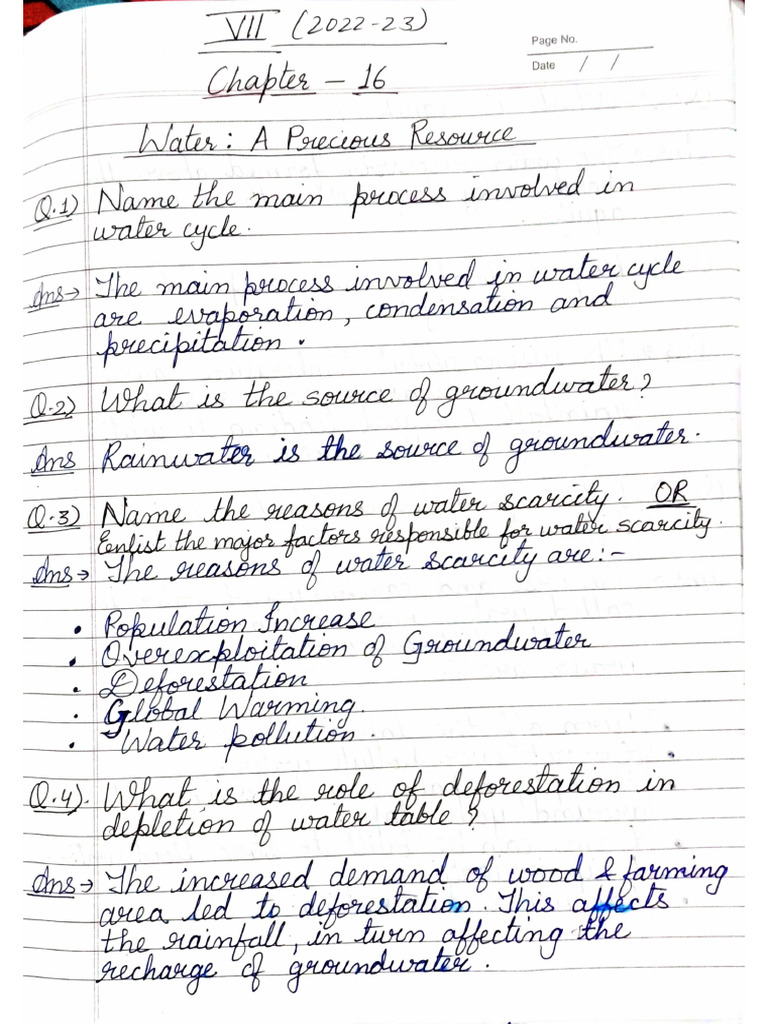 VII (2022-23)
Page No.
Date / /
Chapter – 16
Water : A Precious Resource
Q.1) Name the main process involved in
water cycle.
Ans→ The main process involved in water cycle
are evaporation, condensation and
precipitation.
Q.2) What is the source of groundwater?
Ans Rainwater is the source of groundwater.
Q.3) Name the reasons of water scarcity. OR
Enlist the major factors responsible for water scarcity.
Ans→ The reasons of water scarcity are:-
• Population Increase
• Overexploitation of Groundwater
• Deforestation
• Global Warming.
• Water pollution.
Q.4). What is the role of deforestation in
depletion of water table?
Ans→ The increased demand of wood & farming
area led to deforestation. This affects
the rainfall, in turn affecting the
recharge of groundwater.